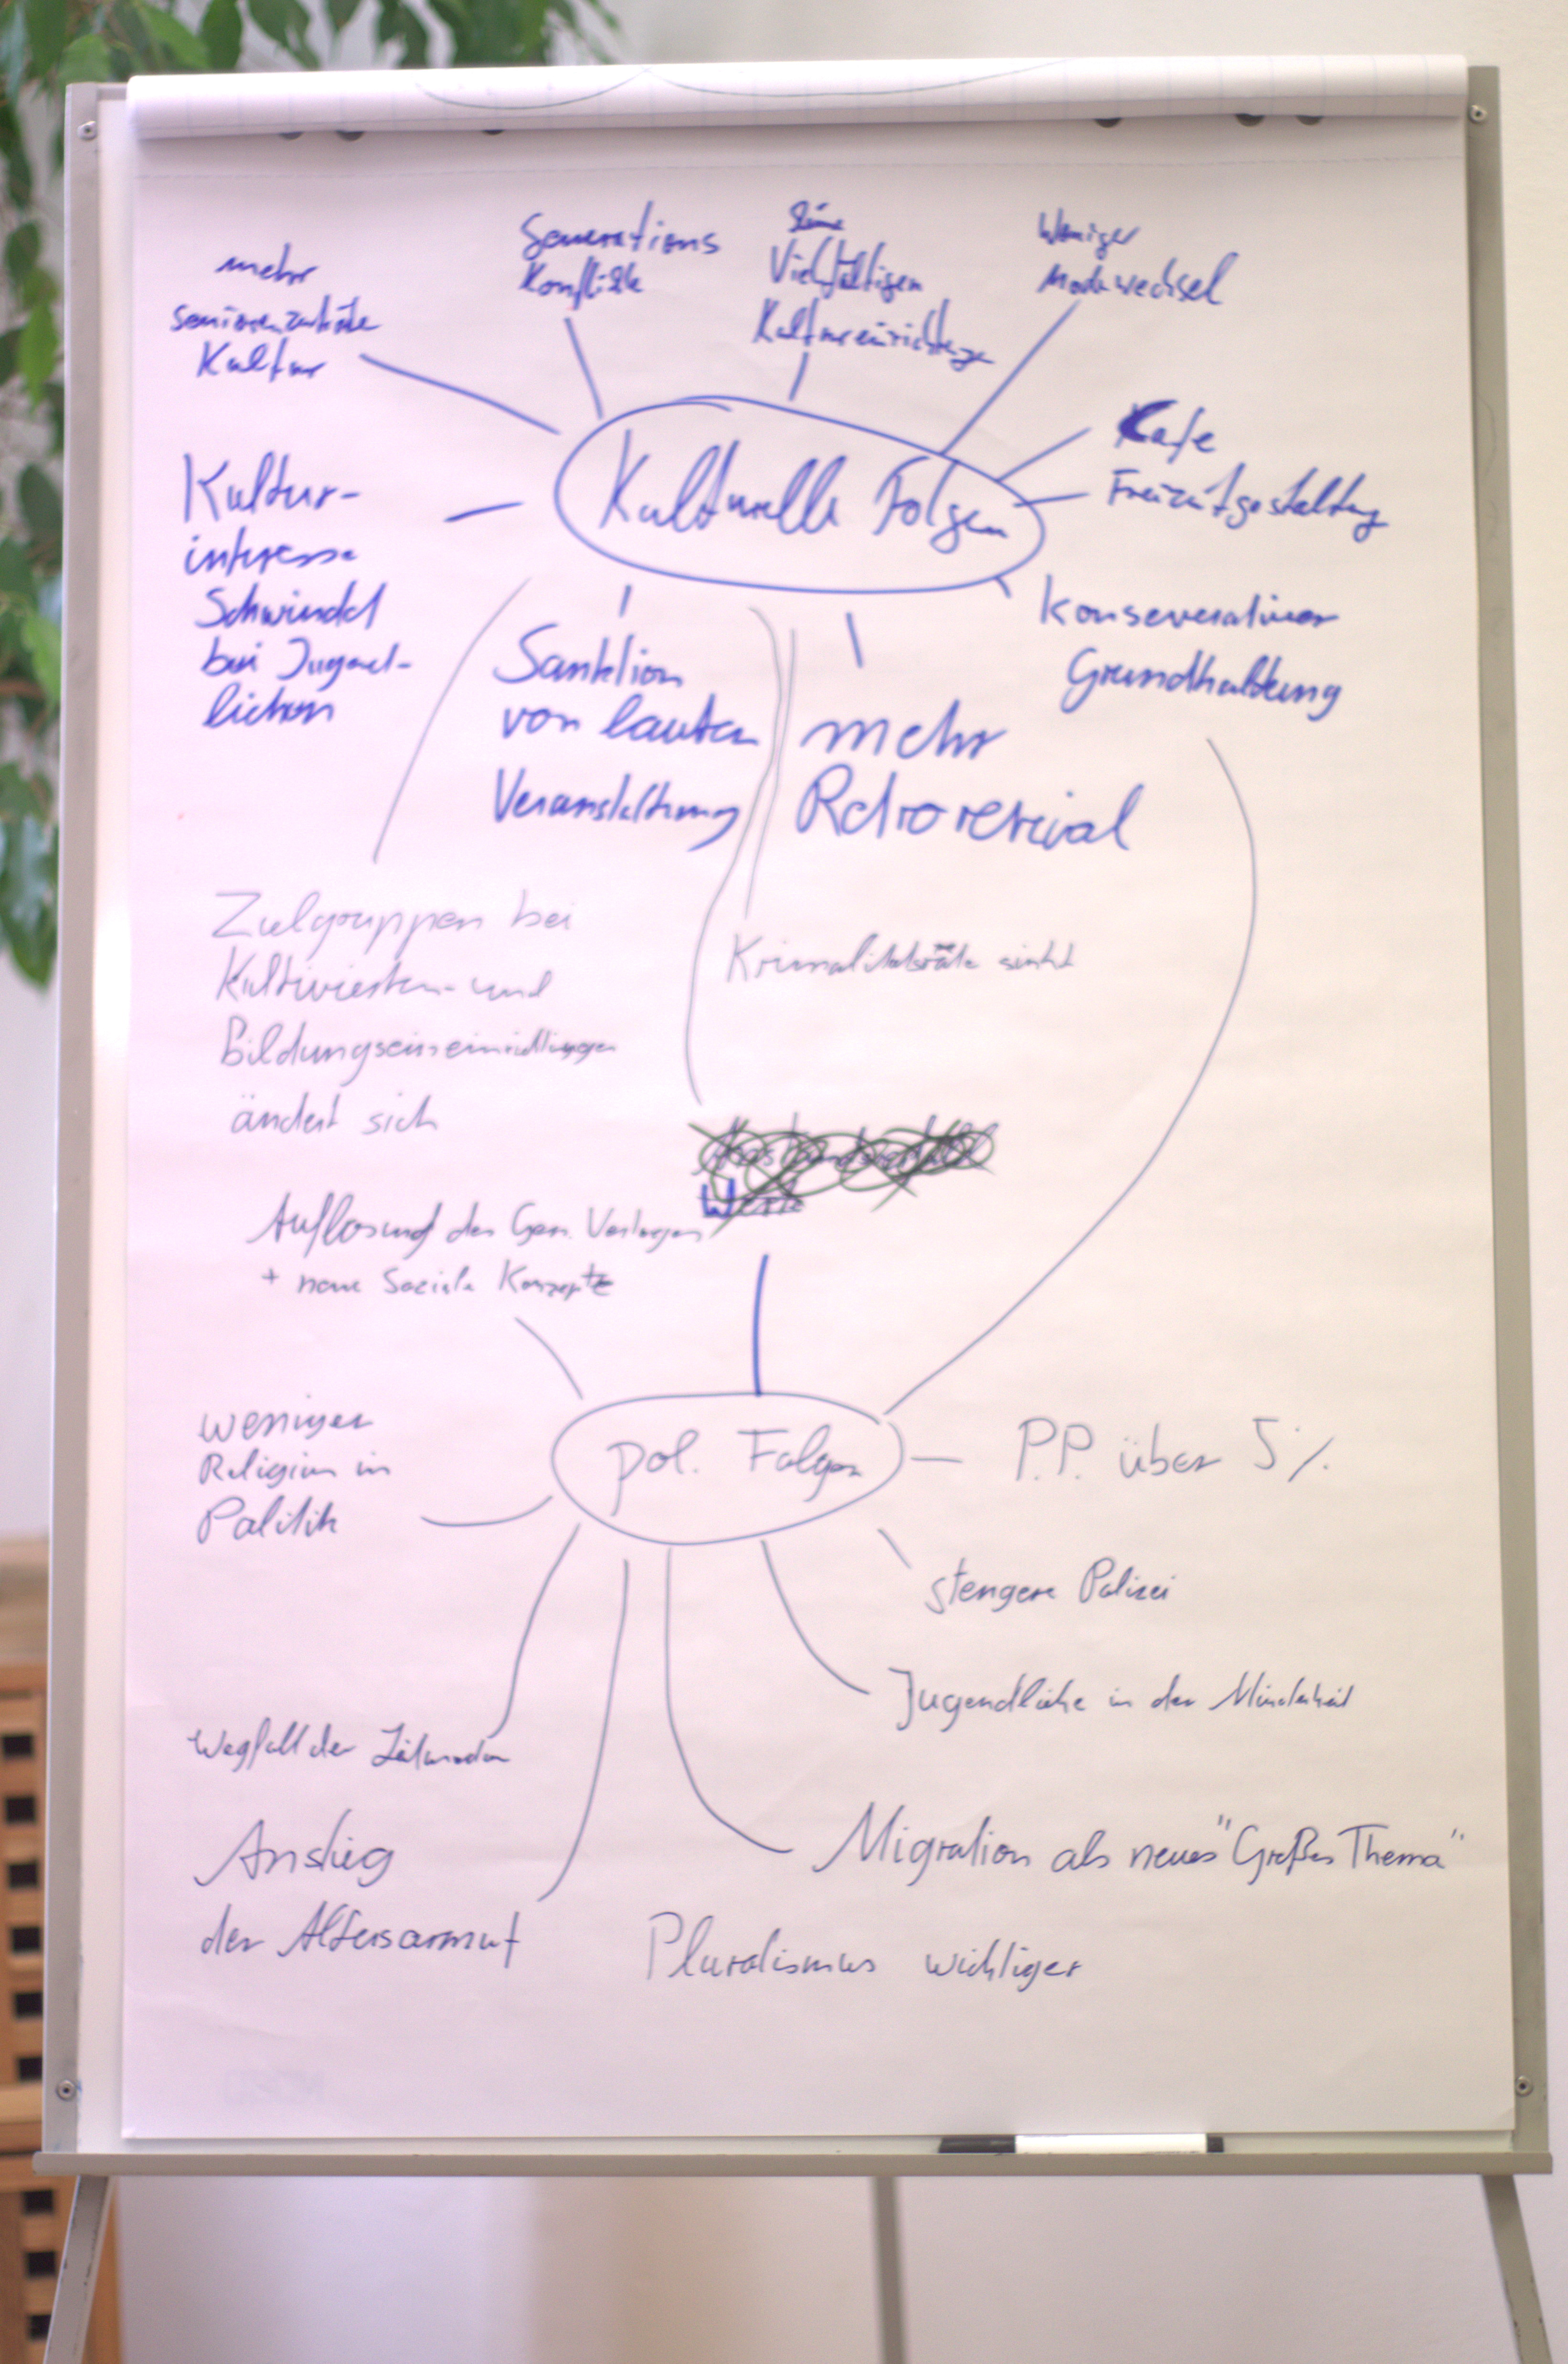 mehr
Kultur
Generations
Konflikte
Vielfältigen
Weniger
Modewechsel
Kulturelle Folgen
Cafe
Freizeitgestaltung
Kultur-
interesse
Schwindet
bei Jugend-
lichen
Sanktion
von lauten
Veranstaltung
mehr
Retrorevival
Konseverativer
Grundhaltung
Zielgruppen bei
und
ändert sich
sinkt
Werte
Auflösung des Gen.
+ neue Soziale Konzepte
weniger
Religion in
Politik
pol. Folgen
P.P. über 5%
stengere Polizei
Jugendliche in der Minderheit
Wegfall der
Anstieg
der Altersarmut
Migration als neues "Großes Thema"
Pluralismus wichtiger